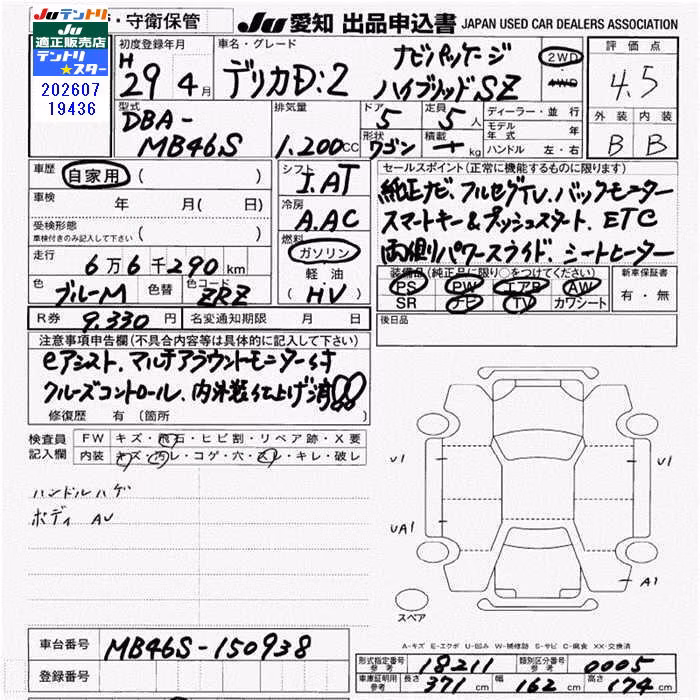 Juテントリ
Ju
適正販売店
テントリ
★スター
202607
19436
・守衛保管
Ju 愛知 出品申込書 JAPAN USED CAR DEALERS ASSOCIATION
初度登録年月
H 29 4月
車名・グレード
ナビパッケージ
デリカD:2 ハイブリッドSZ
2WD
4WD
評価点
4.5
外装 内装
B B
型式
DBA-
MB46S
排気量
1.200CC
ドア 5
定員 5人
形状 ワゴン
積載 kg
ディーラー・並行
モデル年式 年
ハンドル 左・右
車歴 自家用 ( )
車検 年 月( 日)
受検形態
車検付きのみ記入して下さい ( )
走行
6万6千290km
色 ブルーM 色替 色コード ZRZ
R券 9.330円 名変通知期限 月 日
シフト
I.AT
冷房
A.AC
燃料
ガソリン
軽油
(HV)
セールスポイント(正常に機能するものに限ります)
純正ナビ、フルセグTV、バックモニター
スマートキー&プッシュスタート、ETC
両側パワースライド、シートヒーター
装備品(純正品に限り○をつけてください)
PS PW エアB AW
SR ナビ TV カワシート
新車保証書
有・無
後日品
注意事項申告欄(不具合内容等は具体的に記入して下さい)
eアシスト、マルチアラウンドモニター付
クルーズコントロール、内外装仕上げ済
修復歴 有(箇所 )
検査員
記入欄
FW キズ・飛石・ヒビ割・リペア跡・X要
内装 キズ・汚レ・コゲ・穴・スレ・キレ・破レ
ハンドルハゲ
ボディ AU
U1
U1
UA1
A1
スペア
A-キズ E-エクボ U-凹み W-補修跡 S-サビ C-腐食 XX-交換済
車台番号 MB46S-150938
登録番号
形式指定番号 参考 18211 類別区分番号 参考 0005
車庫証明用 参考 長さ 371cm 幅 162cm 高さ 174cm